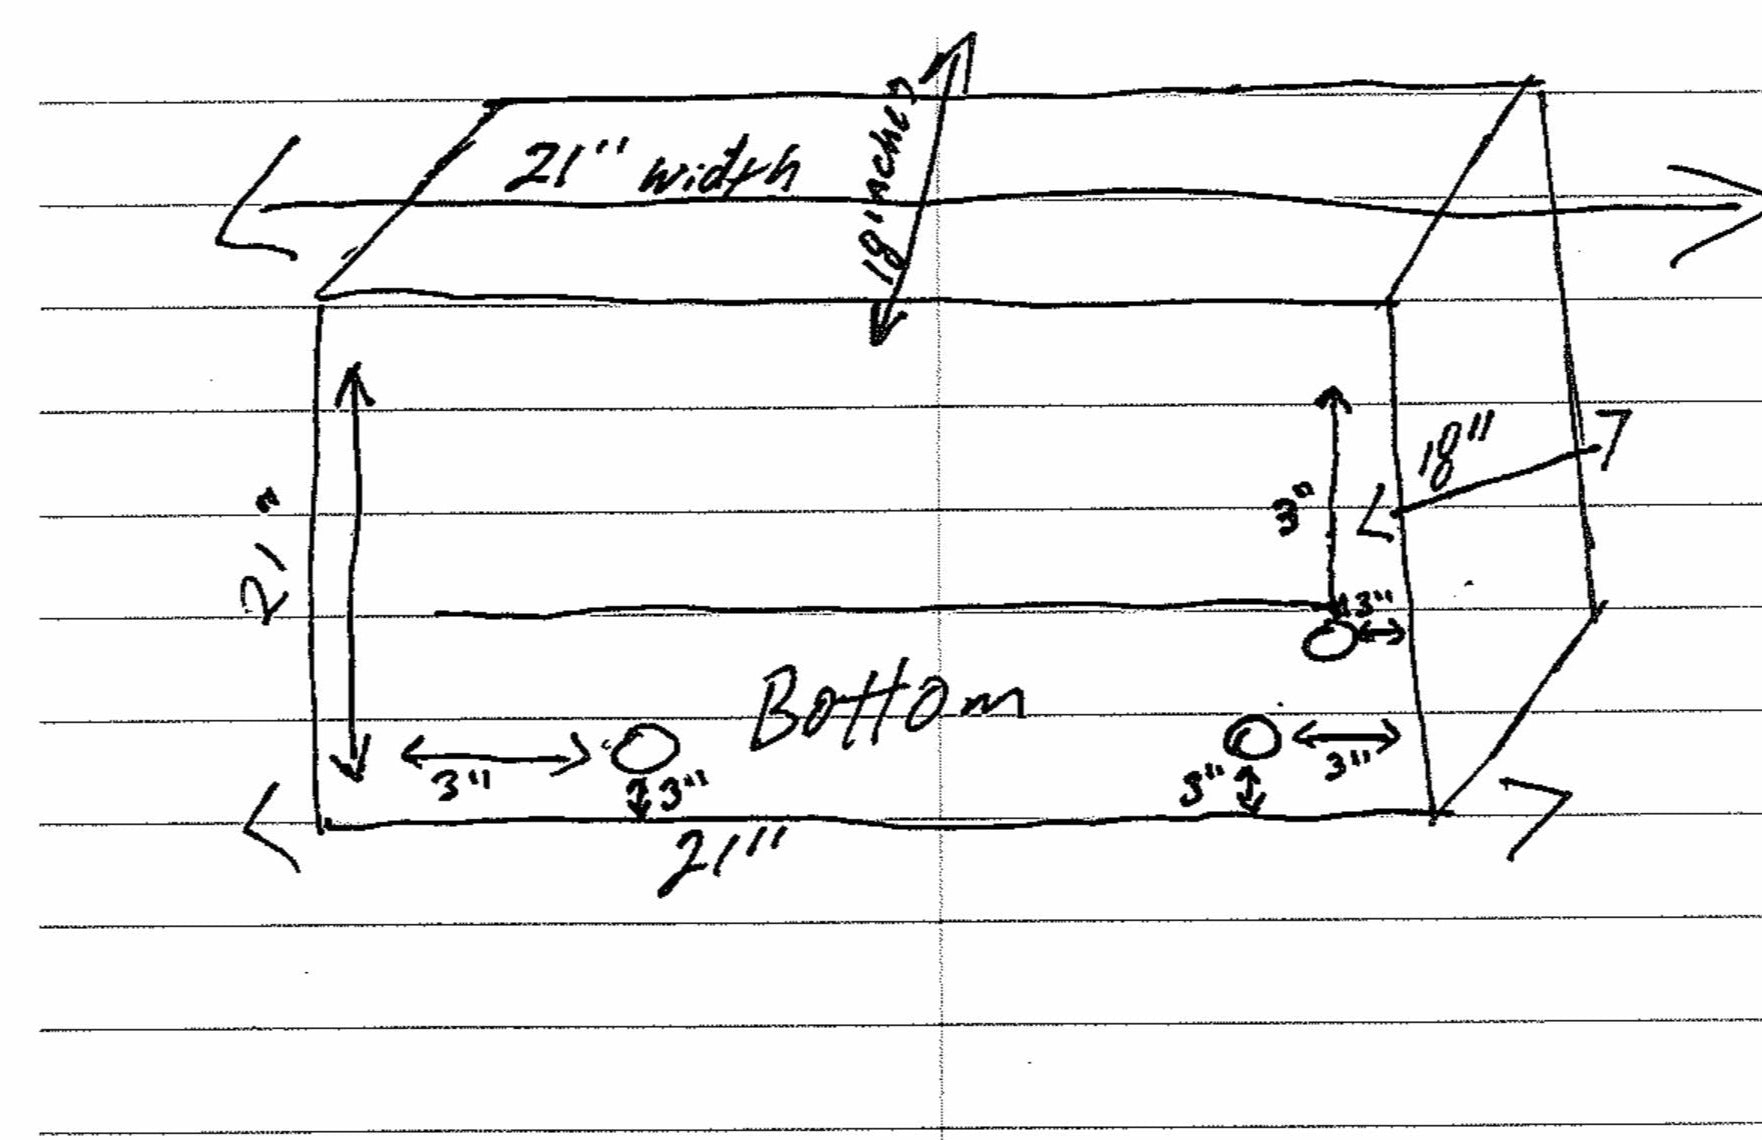 21" width
18 inches
18"
21"
3"
3"
Bottom
3"
3"
3"
3"
21"